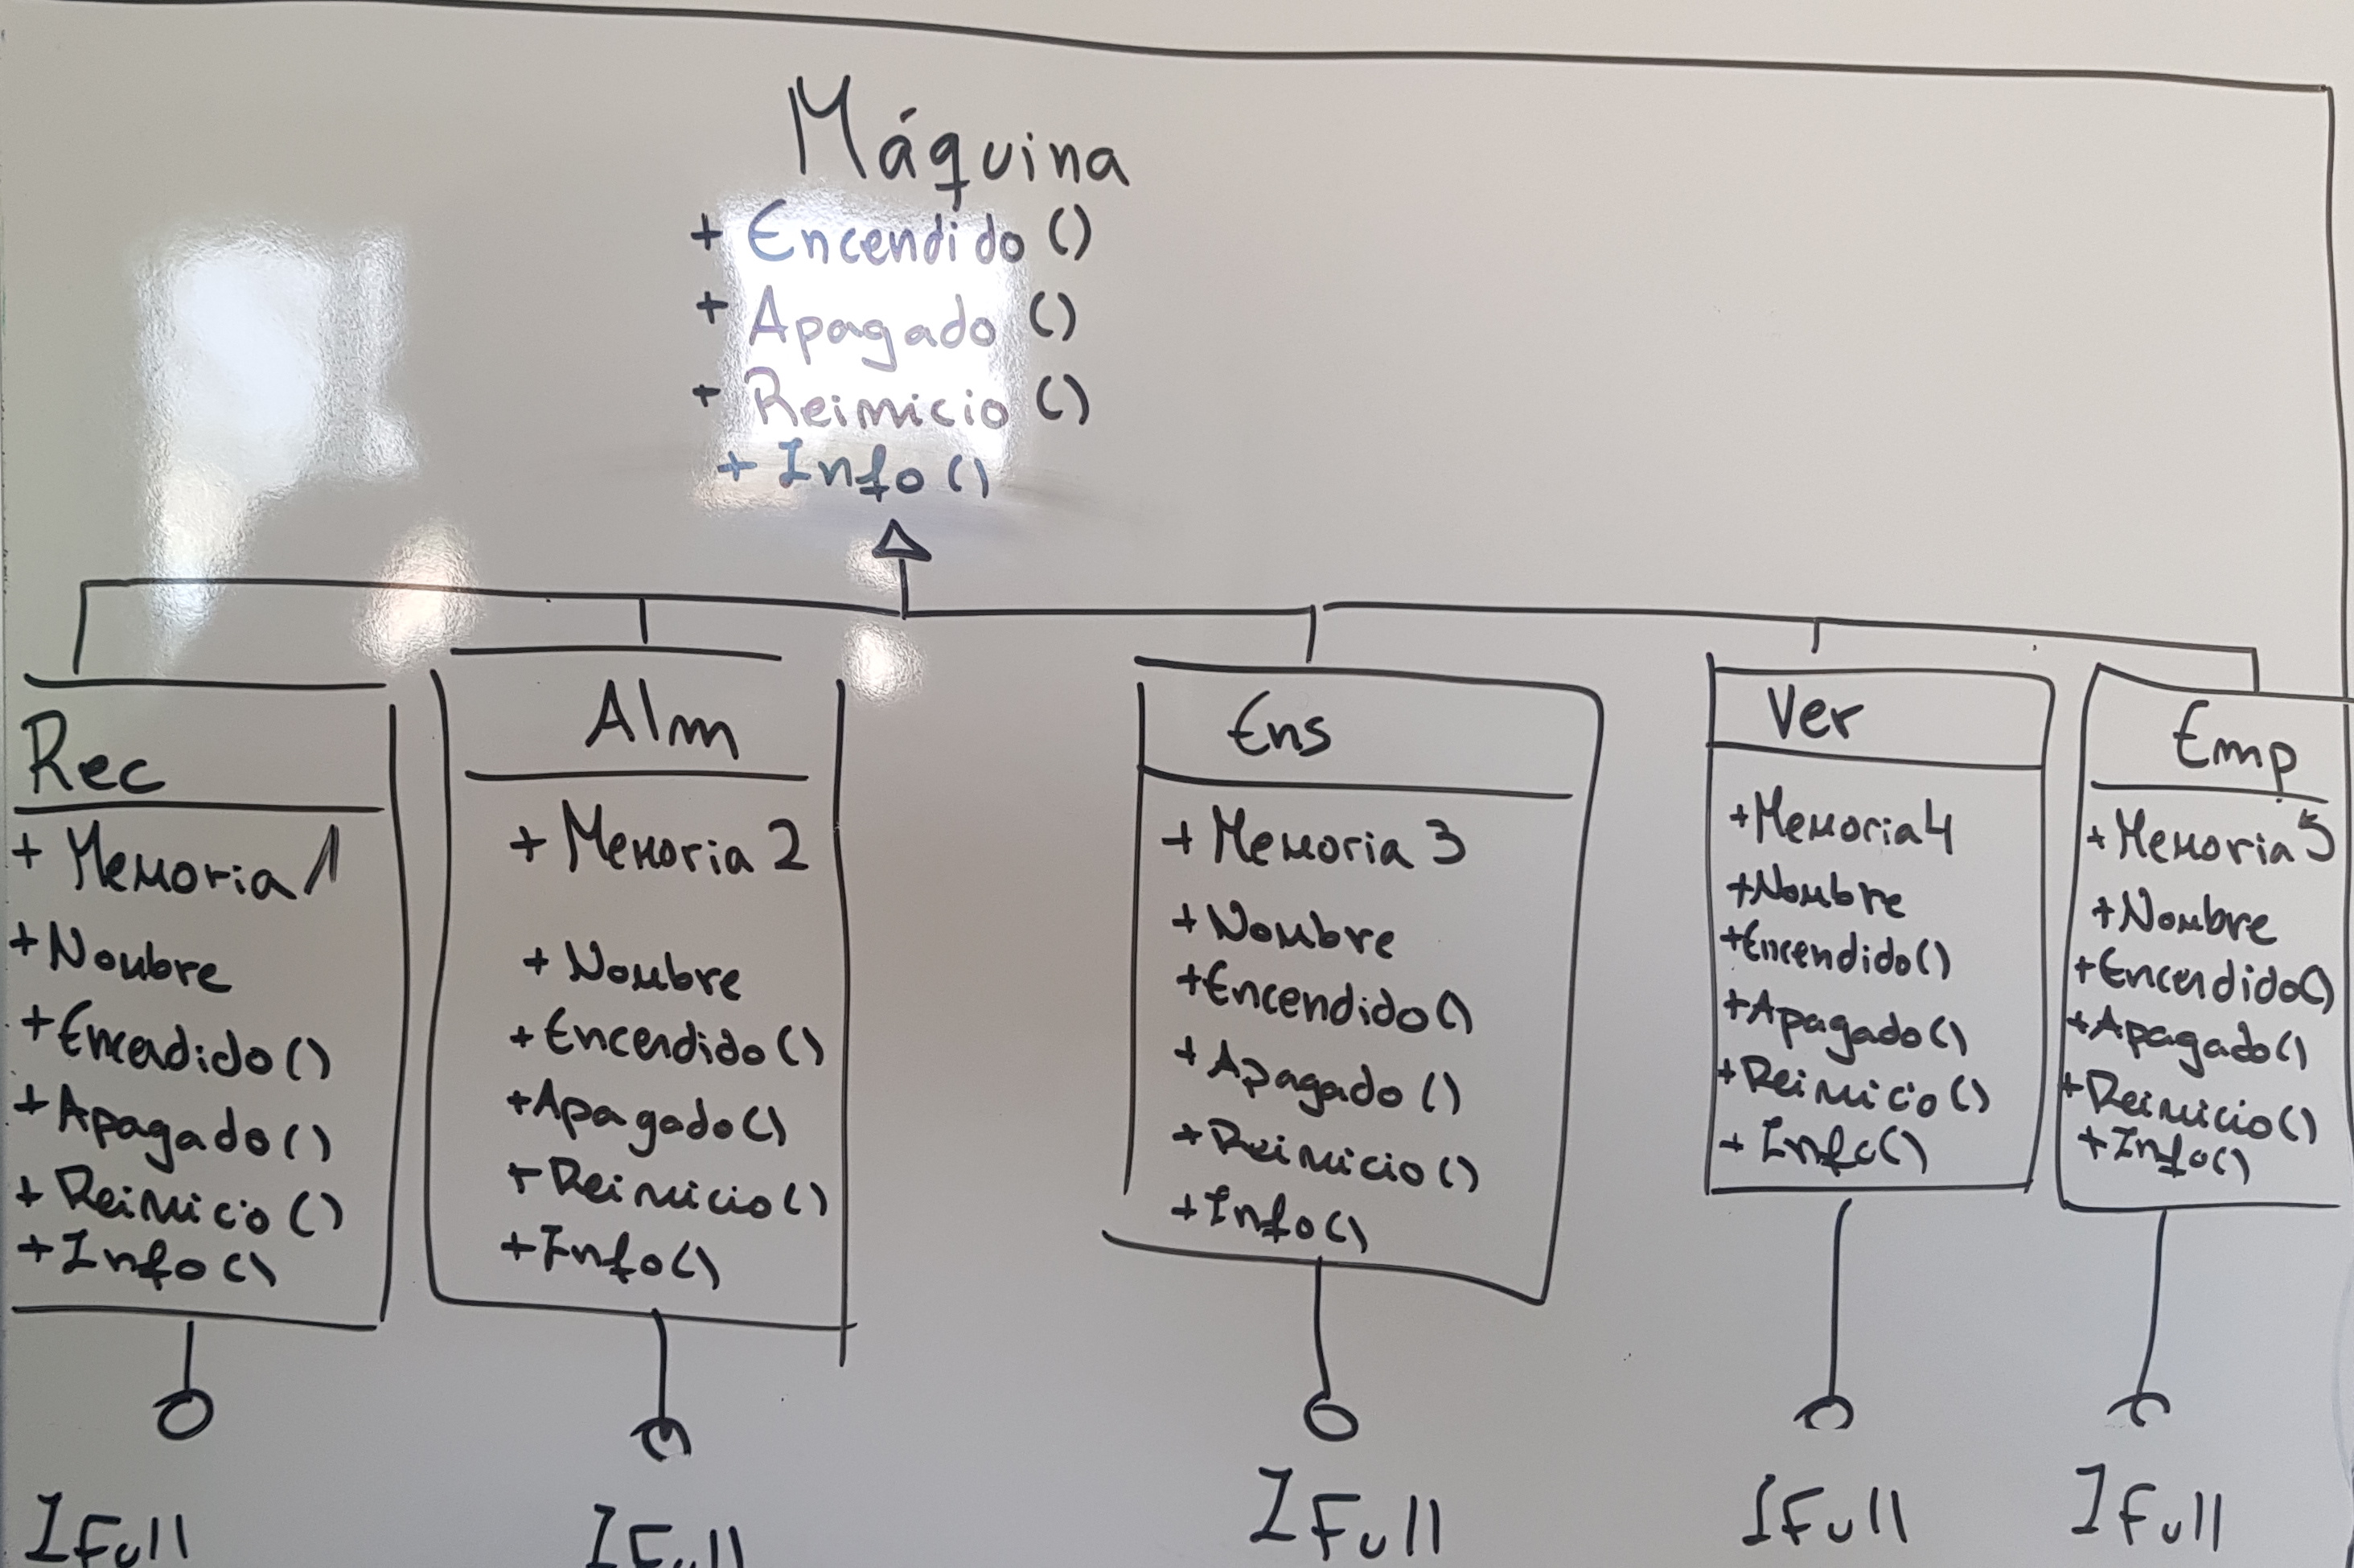 Máquina
+ Encendido ()
+ Apagado ()
+ Reinicio ()
+ Info ()
Rec
+ Memoria 1
+ Nombre
+ Encendido ()
+ Apagado ()
+ Reinicio ()
+ Info ()
IFull
Alm
+ Memoria 2
+ Nombre
+ Encendido ()
+ Apagado ()
+ Reinicio ()
+ Info ()
IFull
Ens
+ Memoria 3
+ Nombre
+ Encendido ()
+ Apagado ()
+ Reinicio ()
+ Info ()
IFull
Ver
+ Memoria 4
+ Nombre
+ Encendido ()
+ Apagado ()
+ Reinicio ()
+ Info ()
IFull
Emp
+ Memoria 5
+ Nombre
+ Encendido ()
+ Apagado ()
+ Reinicio ()
+ Info ()
IFull